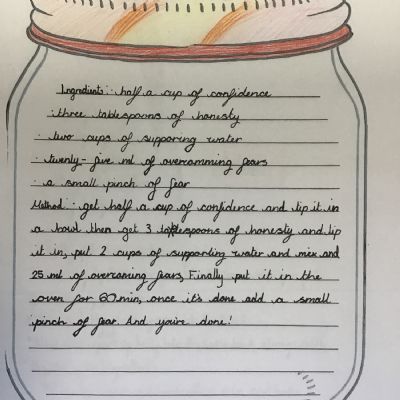 Ingredients: half a cup of confidence
: three tablespoons of honesty
: two cups of supporing water
: twenty-five ml of overcomming fears
: a small pinch of fear
Method: get half a cup of confidence and tip it in
a bowl then get 3 tablespoons of honesty and tip
it in, put 2 cups of supporting water and mix and
25 ml of overcoming fears, Finally put it in the
oven for 60 min, once it's done add a small
pinch of fear. And you're done!